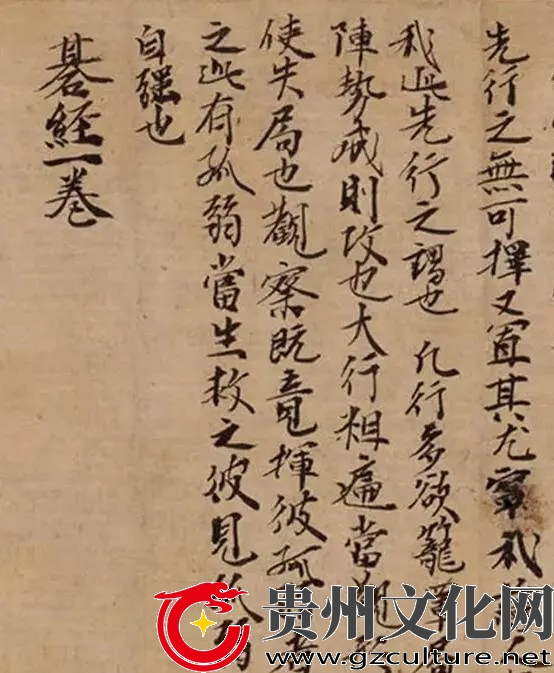 先行之無可擇又宜其尤
我此先行之謂也 凡行多欲籠
陣勢成則攻也大行粗遍當觀
使失局也觀察既竟揮彼孤
之此有孤弱當生救之彼見孤弱
自強也
碁經一卷
贵州文化网
www.gzculture.net